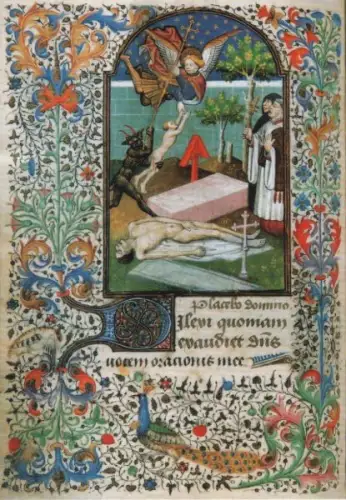 Placebo domino
Dilexi quoniam
exaudiet dñs
vocem orationis mee